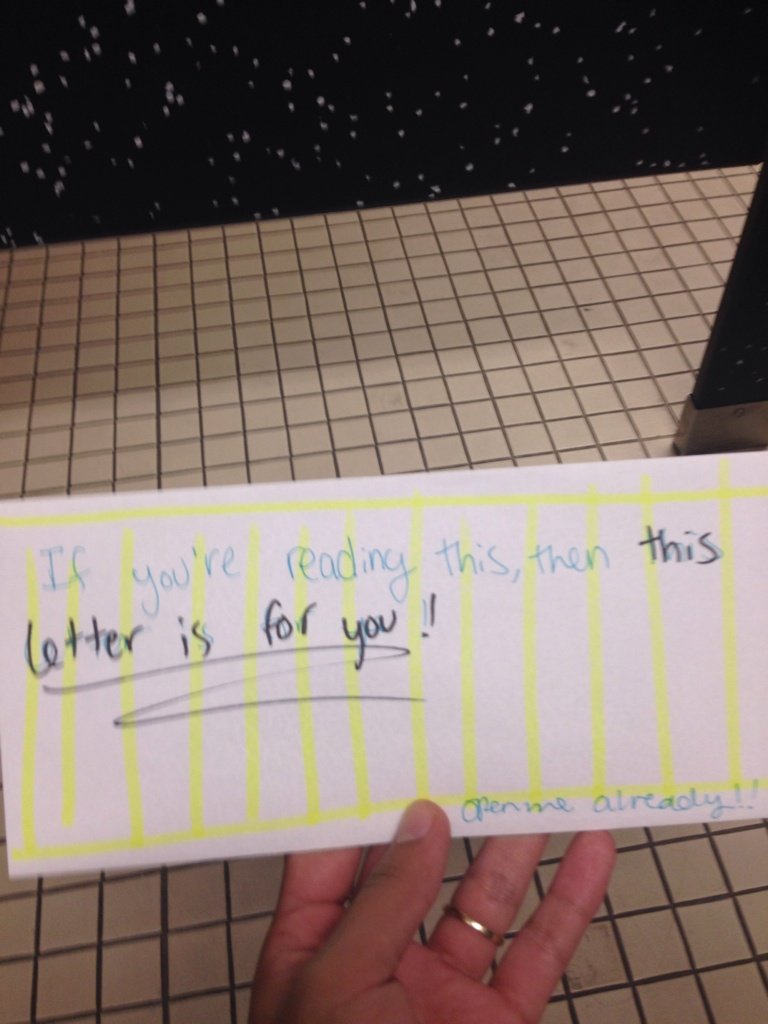 If you're reading this, then this
letter is for you!!
open me already!!